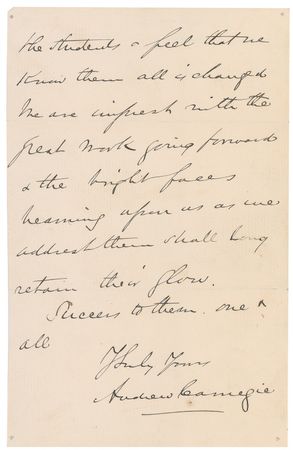 the students & feel that we
know them all is changed
We are imprest with the
great work going forward
& the bright faces
beaming upon us as we
addrest them shall long
retain their glow.
Success to them one &
all
Truly Yours
Andrew Carnegie